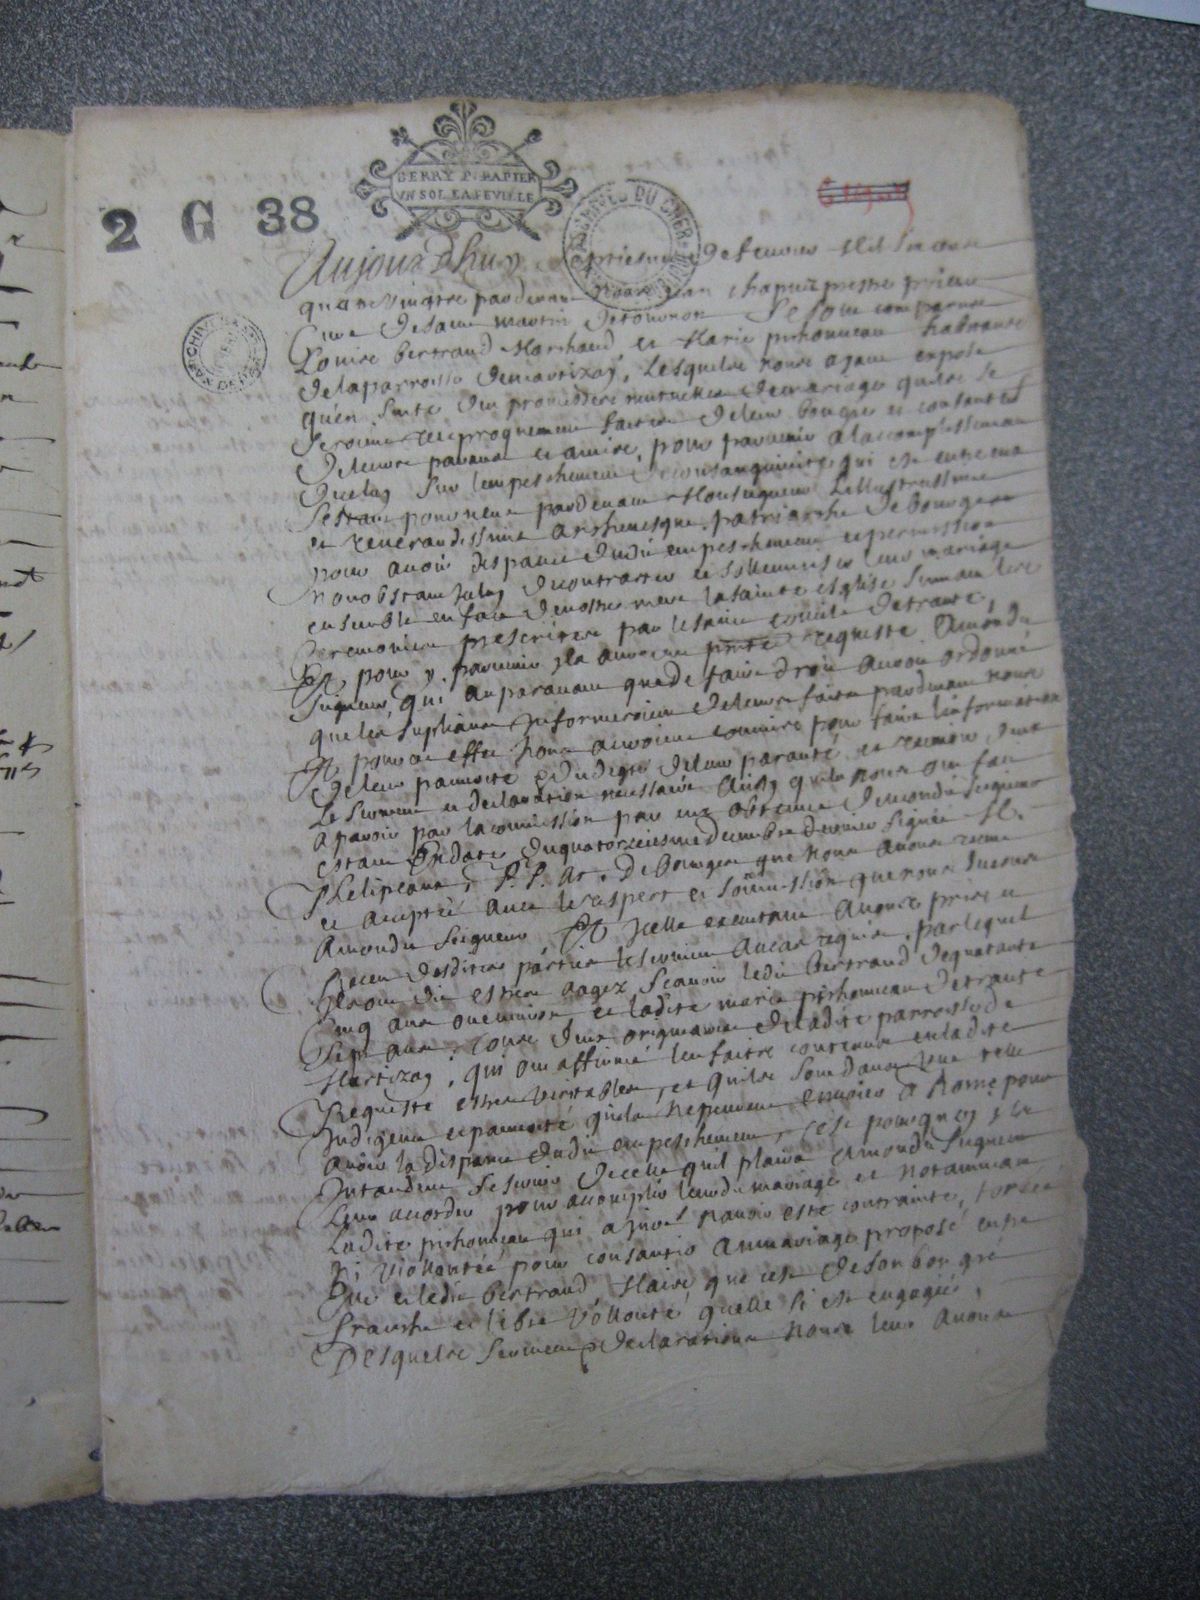 BERRY P. PAPIER
UN SOL LA FEUILLE
2 G 38
ARCHIVES DU CHER
Aujourdhuy de feuvrier Mil six cens
quatrevingtre pardevant Nous Jean prestre prieur
Cure de saint martin de tournon se sont comparus
Louise bertrand Marchand et Marie pichonneau habitants
de la parroisse de martizay, Lesquels nous ayant exposé
quen suite des promesses mutuelles de mariage quils se
seroient reciproquement faittes de leur bouche et consantement
de leurs parans et amis, pour parvenir a laccomplissement
diceluy sur lempeschement de consanguinité qui est entre eux
sestans pourveus pardevant Monseigneur Lillustrissime
et reverendissime archevesque, patriarche de Bourges
pour avoir dispance dudit empeschement et permission
nonobstant iceluy de contracter et solemniser leur mariage
ensemble en face de nostre mere la sainte esglise suivant les
ceremonies prescrites par le saint concile de trante,
Et pour y parvenir ils auroient requeste a mondit
Seigneur, qui auparavant que de faire droit auroit ordonné
que les supliants informeroient de leurs faits pardevant nous
Et pour ce effet nous auroient commis pour faire linformation
de leur pauvreté et du degré de leur paranté et recevoir deux
Le serment et declaration necessaire Ainsy quils nous ont fait
aparoir par la commission par eux obtenue de mondit seigneur
estant en datte du quatorzeiesme decembre dernier signée M.
Phelipeaux, P. P. Ar. De Bourges que nous avons receue
et acceptée avec le respect et soumission que nous devons
a mondit Seigneur Et Icelle executant avons pris et
Receu desdites parties le serment au cas requis, par lequel
Ils ont dit estre aagez scavoir ledit Bertrand de quarante
cinq ans ou environ et ladite marie pichonneau de trante
sept ans, tous deux originaires de ladite parroisse de
Martizay, qui ont affirmé les faits contenus en ladite
Requeste estre veritables, et quils sont dans une telle
Indigence et pauvreté quils ne peuvent envoier a Rome pour
avoir la dispance dudit empeschement, cest pourquoy ils
entendent se servir de celle quil plaira a mondit Seigneur
Leur accorder pour accomplir leurdit mariage, et notamment
Ladite pichonneau qui a juré navoir esté contrainte, forcée
ni viollantée pour consantir au mariage proposé entre
Elle et ledit bertrand, Mais que cest de son bon gré
franche et libre vollonté quelle si est engagée,
Desquels serment et declarations nous leur avons